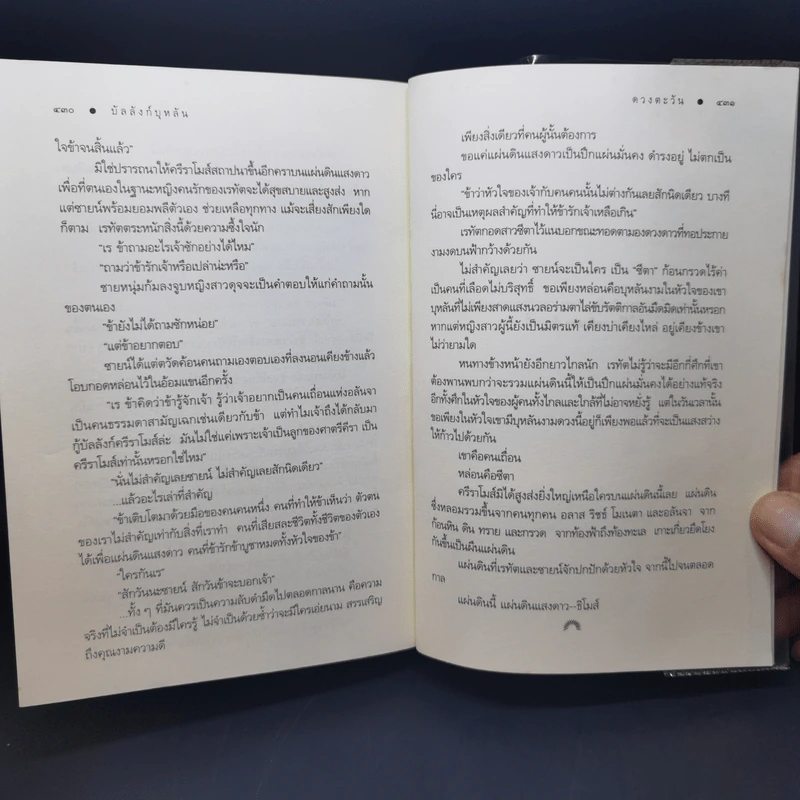 ๔๓๐ ● บัลลังก์บุหลัน
ใจข้าจนสิ้นแล้ว”
มิใช่ปรารถนาให้ครีราโมส์สถาปนาขึ้นอีกคราบนแผ่นดินแสงดาว
เพื่อที่ตนเองในฐานะหญิงคนรักของเรทัตจะได้สุขสบายและสูงส่ง หาก
แต่ซายน์พร้อมยอมพลีตัวเอง ช่วยเหลือทุกทาง แม้จะเสี่ยงสักเพียงใด
ก็ตาม เรทัตตระหนักสิ่งนี้ด้วยความซึ้งใจนัก
“เร ข้าถามอะไรเจ้าซักอย่างได้ไหม”
“ถามว่าข้ารักเจ้าหรือเปล่าน่ะหรือ”
ชายหนุ่มก้มลงจูบหญิงสาวดุจจะเป็นคำตอบให้แก่คำถามนั้น
ของตนเอง
“ข้ายังไม่ได้ถามซักหน่อย”
“แต่ข้าอยากตอบ”
ซายน์ได้แต่ตวัดค้อนคนถามเองตอบเองที่ลงนอนเคียงข้างแล้ว
โอบกอดหล่อนไว้ในอ้อมแขนอีกครั้ง
“เร ข้าคิดว่าข้ารู้จักเจ้า รู้ว่าเจ้าอยากเป็นคนเถื่อนแห่งอลันจา
เป็นคนธรรมดาสามัญเฉกเช่นเดียวกับข้า แต่ทำไมเจ้าถึงได้กลับมา
กู้บัลลังก์ครีราโมส์ล่ะ มันไม่ใช่แค่เพราะเจ้าเป็นลูกของศาตรีคีรา เป็น
ครีราโมส์เท่านั้นหรอกใช่ไหม”
“นั่นไม่สำคัญเลยซายน์ ไม่สำคัญเลยสักนิดเดียว”
...แล้วอะไรเล่าที่สำคัญ
“ข้าเติบโตมาด้วยมือของคนคนหนึ่ง คนที่ทำให้ข้าเห็นว่า ตัวตน
ของเราไม่สำคัญเท่ากับสิ่งที่เราทำ คนที่เสียสละชีวิตทั้งชีวิตของตัวเอง
ได้เพื่อแผ่นดินแสงดาว คนที่ข้ารักข้าบูชาหมดทั้งหัวใจของข้า”
“ใครกันเร”
“สักวันนะซายน์ สักวันข้าจะบอกเจ้า”
...ทั้ง ๆ ที่มันควรเป็นความลับดำมืดไปตลอดกาลนาน คือความ
จริงที่ไม่จำเป็นต้องมีใครรู้ ไม่จำเป็นด้วยซ้ำว่าจะมีใครเอ่ยนาม สรรเสริญ
ถึงคุณงามความดี
ดวงตะวัน ● ๔๓๑
เพียงสิ่งเดียวที่คนผู้นั้นต้องการ
ขอแค่แผ่นดินแสงดาวเป็นปึกแผ่นมั่นคง ดำรงอยู่ ไม่ตกเป็น
ของใคร
“ข้าว่าหัวใจของเจ้ากับคนคนนั้นไม่ต่างกันเลยสักนิดเดียว บางที
นี่อาจเป็นเหตุผลสำคัญที่ทำให้ข้ารักเจ้าเหลือเกิน”
เรทัตกอดสาวซีตาไว้แนบอกขณะทอดตามองดวงดาวที่ทอประกาย
งามงดบนฟ้ากว้างด้วยกัน
ไม่สำคัญเลยว่า ซายน์จะเป็นใคร เป็น “ซีตา” ก้อนกรวดไร้ค่า
เป็นคนที่เลือดไม่บริสุทธิ์ ขอเพียงหล่อนคือบุหลันงามในหัวใจของเขา
บุหลันที่ไม่เพียงสาดแสงนวลอร่ามตาไล่ขับรัตติกาลอันมืดมิดเท่านั้นหรอก
หากแต่หญิงสาวผู้นี้ยังเป็นมิตรแท้ เคียงบ่าเคียงไหล่ อยู่เคียงข้างเขา
ไม่ว่ายามใด
หนทางข้างหน้ายังอีกยาวไกลนัก เรทัตไม่รู้ว่าจะมีอีกกี่ศึกที่เขา
ต้องพานพบกว่าจะรวมแผ่นดินนี้ให้เป็นปึกแผ่นมั่นคงได้อย่างแท้จริง
อีกทั้งศึกในหัวใจของผู้คนทั้งไกลและใกล้ที่ไม่อาจหยั่งรู้ แต่ในวันเวลานั้น
ขอเพียงในหัวใจเขามีบุหลันงามดวงนี้อยู่ก็เพียงพอแล้วที่จะเป็นแสงสว่าง
ให้ก้าวไปด้วยกัน
เขาคือคนเถื่อน
หล่อนคือซีตา
ครีราโมส์มิได้สูงส่งยิ่งใหญ่เหนือใครบนแผ่นดินนี้เลย แผ่นดิน
ซึ่งหลอมรวมขึ้นจากคนทุกคน อลาส ริชช์ โมเนตา และอลันจา จาก
ก้อนหิน ดิน ทราย และกรวด จากท้องฟ้าถึงท้องทะเล เกาะเกี่ยวยึดโยง
กันขึ้นเป็นผืนแผ่นดิน
แผ่นดินที่เรทัตและซายน์จักปกปักด้วยหัวใจ จากนี้ไปจนตลอด
กาล
แผ่นดินนี้ แผ่นดินแสงดาว--ชิโมส์